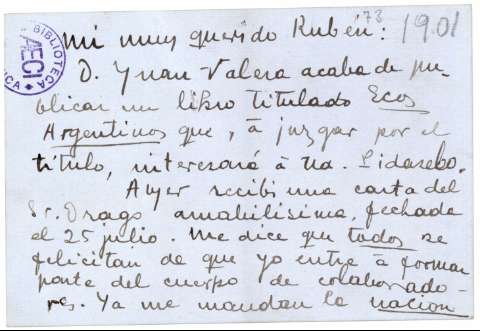 mi muy querido Rubén: 73 1901
D. Yuan Valera acaba de pu-
blicar un libro titulado Ecos
Argentinos que, à juzgar por el
título, interesará à Ud. Pidaselo.
Ayer recibi una carta del
Sr. Drago amabilisima, fechada
el 25 julio. Me dice que todos se
felicitan de que yo entre à formar
parte del cuerpo de colaborado-
res. Ya me mandan la nacion
BIBLIOTECA
AECI